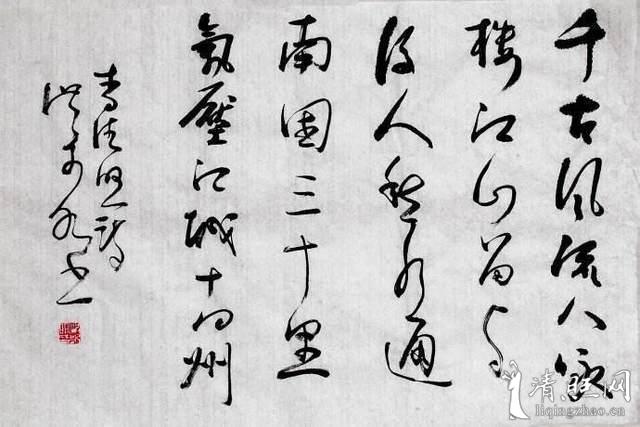 千古风流八咏
楼江山留与
后人愁水通
南国三十里
氣壓江城十四州
李清照诗
书
清旺网
liqingzhao.com